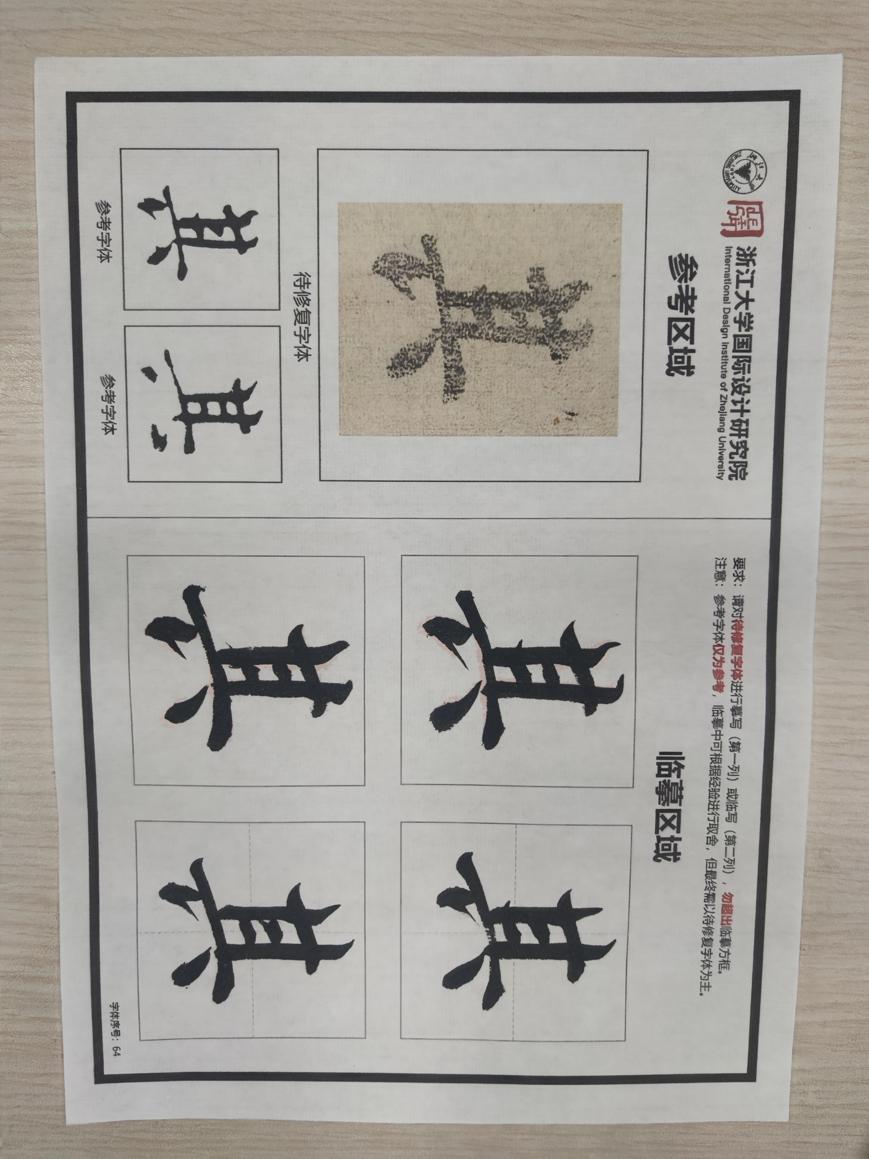 浙江大学国际设计研究院
International Design Institute of Zhejiang University
参考区域
其
待修复字体
其
其
参考字体
参考字体
要求：请对待修复字体进行摹写（第一列）或临写（第二列），勿超出临摹方框。
注意：参考字体仅为参考，临摹中可根据经验进行取舍，但最终需以待修复字体为主。
临摹区域
其
其
其
其
字体序号：64